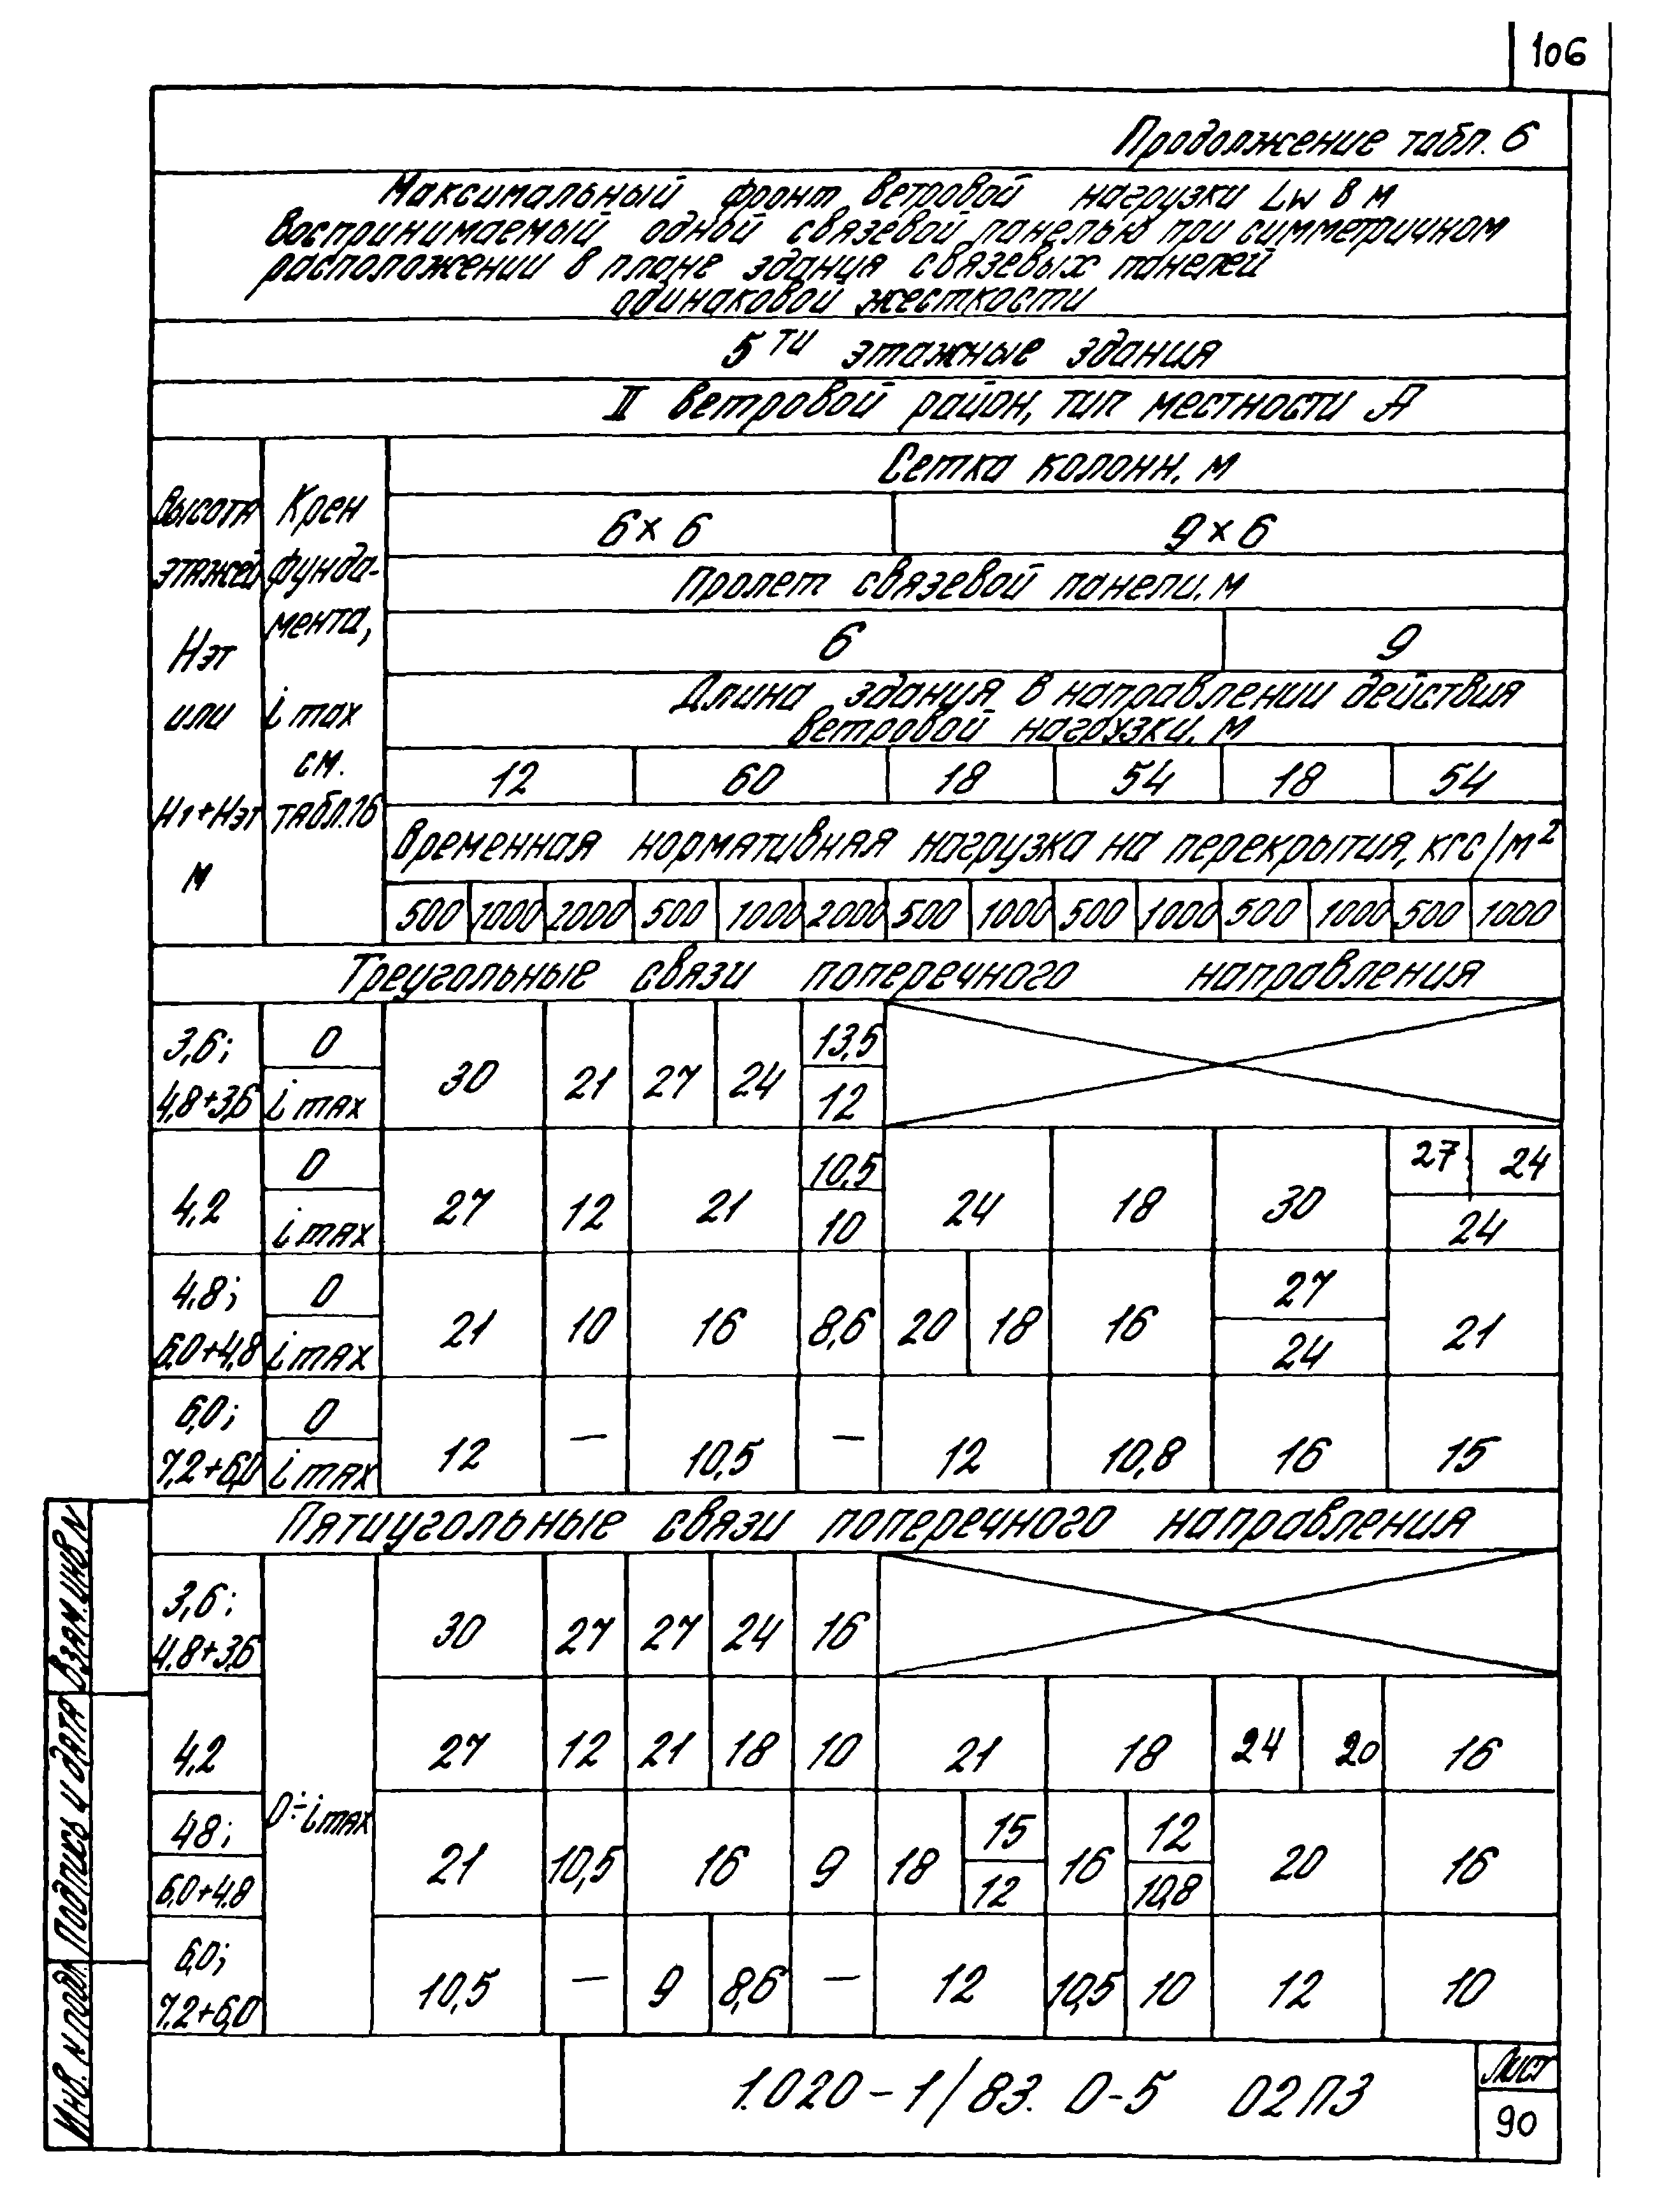 106
Продолжение табл. 6
Максимальный фронт ветровой нагрузки Lw в м
воспринимаемый одной связевой панелью при симметричном
расположении в плане здания связевых панелей
одинаковой жесткости
5ти этажные здания
II ветровой район, тип местности А
Высота этажей Нэт или Н1+Нэт м
Крен фунда-мента, i max см. табл.16
Сетка колонн, м
6×6 9×6
Пролет связевой панели, м
6 9
Длина здания в направлении действия
ветровой нагрузки, м
12 60 18 54 18 54
Временная нормативная нагрузка на перекрытия, кгс/м²
500 1000 2000 500 1000 2000 500 1000 500 1000 500 1000 500 1000
Треугольные связи поперечного направления
3,6; 0 13,5
4,8+3,6 i max 30 21 27 24 12
0 10,5 27 24
4,2 i max 27 12 21 10 24 18 30 24
4,8; 0 27
6,0+4,8 i max 21 10 16 8,6 20 18 16 24 21
6,0; 0
7,2+6,0 i max 12 — 10,5 — 12 10,8 16 15
Пятиугольные связи поперечного направления
3,6;
4,8+3,6 30 27 27 24 16
4,2 27 12 21 18 10 21 18 24 20 16
0÷i max
48; 15 12
6,0+4,8 21 10,5 16 9 18 12 16 10,8 20 16
6,0;
7,2+6,0 10,5 — 9 8,6 — 12 10,5 10 12 10
Взам. инв. N
Подпись и дата
Инв. N подл.
1.020-1/83. 0-5 02ПЗ
Лист
90